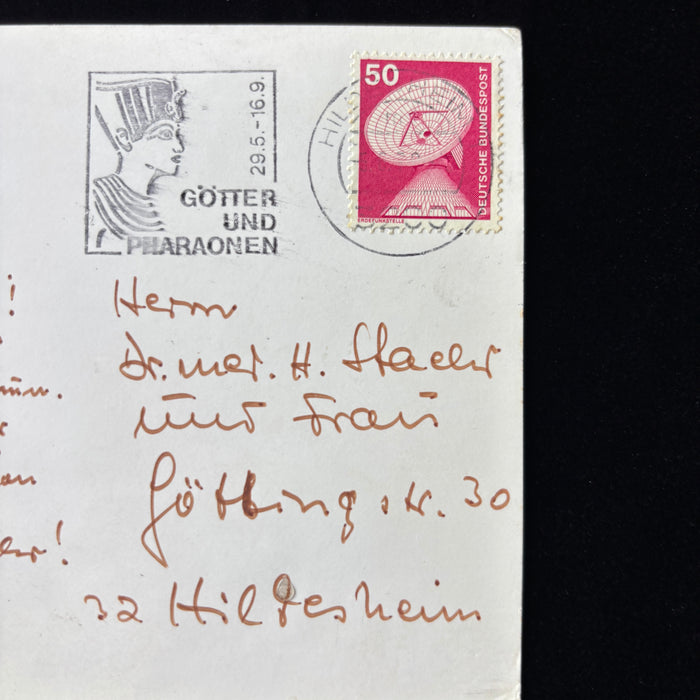 29.5.-16.9.
GÖTTER
UND
PHARAONEN
HILD
50
DEUTSCHE BUNDESPOST
ERDEFUNKSTELLE
!
Herrn
Dr. med. H.
und Frau
str. 30
32 Hildesheim